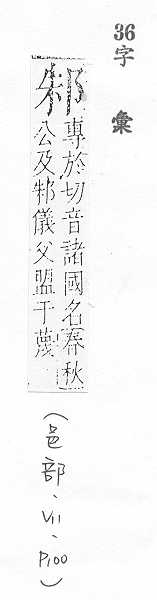 36字彙
邾
專於切音諸國名春秋
公及邾儀父盟于蔑
(邑部、VII、P100)